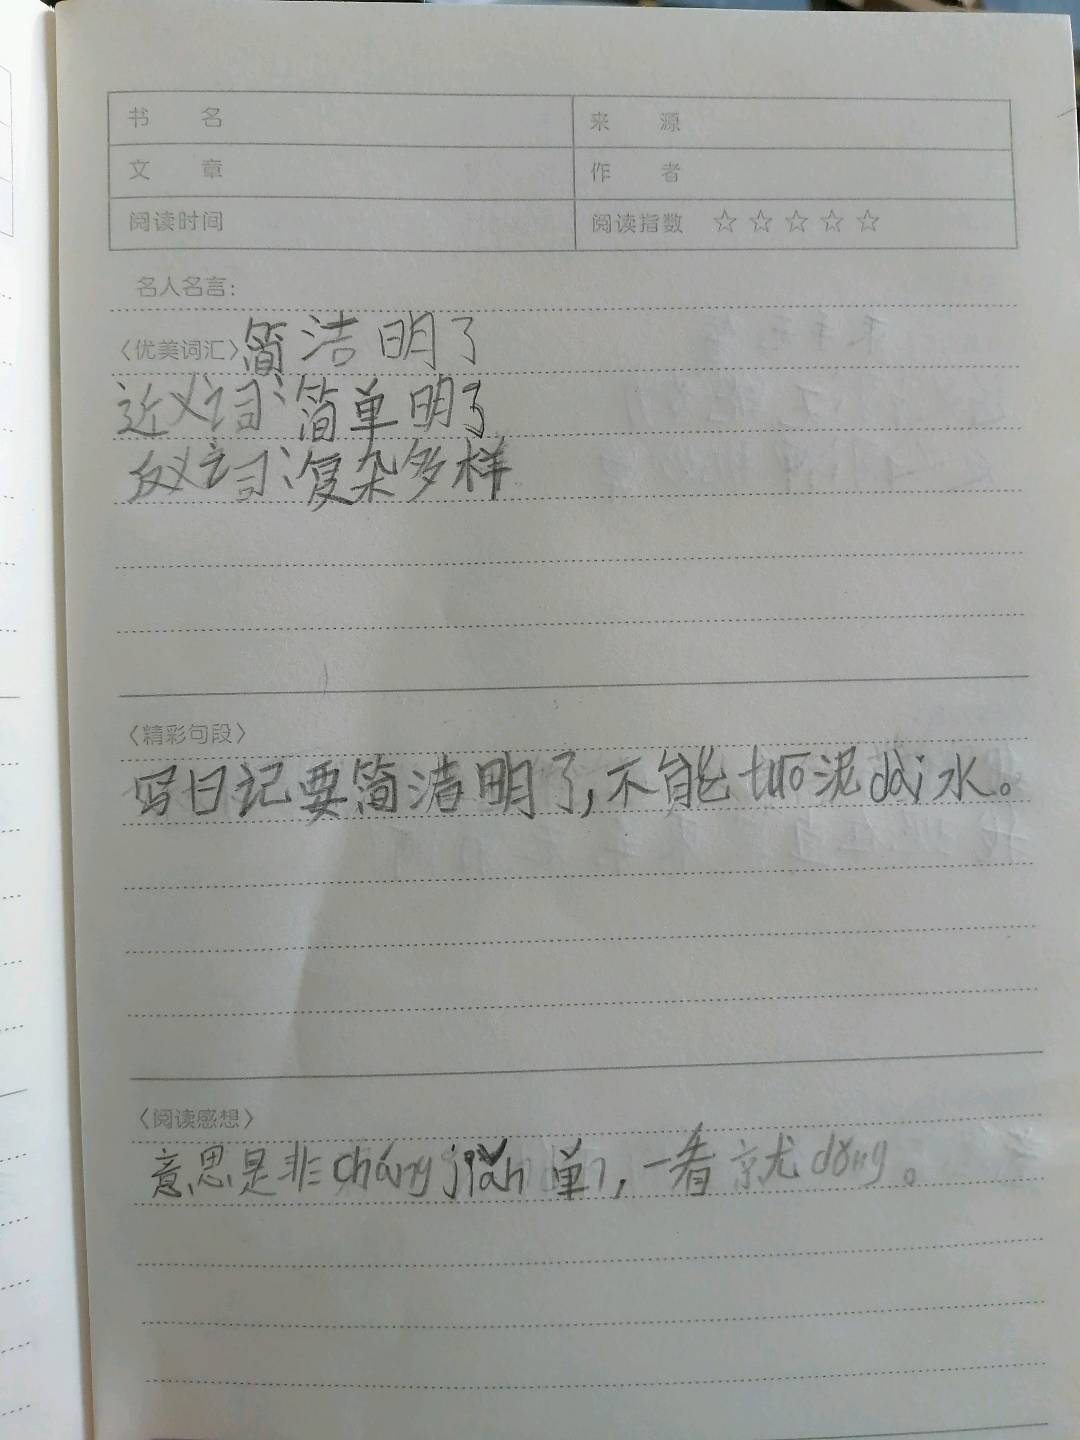 书 名 来 源
文 章 作 者
阅读时间 阅读指数 ☆☆☆☆☆
名人名言:
〈优美词汇〉简洁明了
近义词:简单明了
反义词:复杂多样
〈精彩句段〉
写日记要简洁明了,不能tuō泥dài水。
〈阅读感想〉
意思是非cháng jiǎn 单,一看就dǒng。